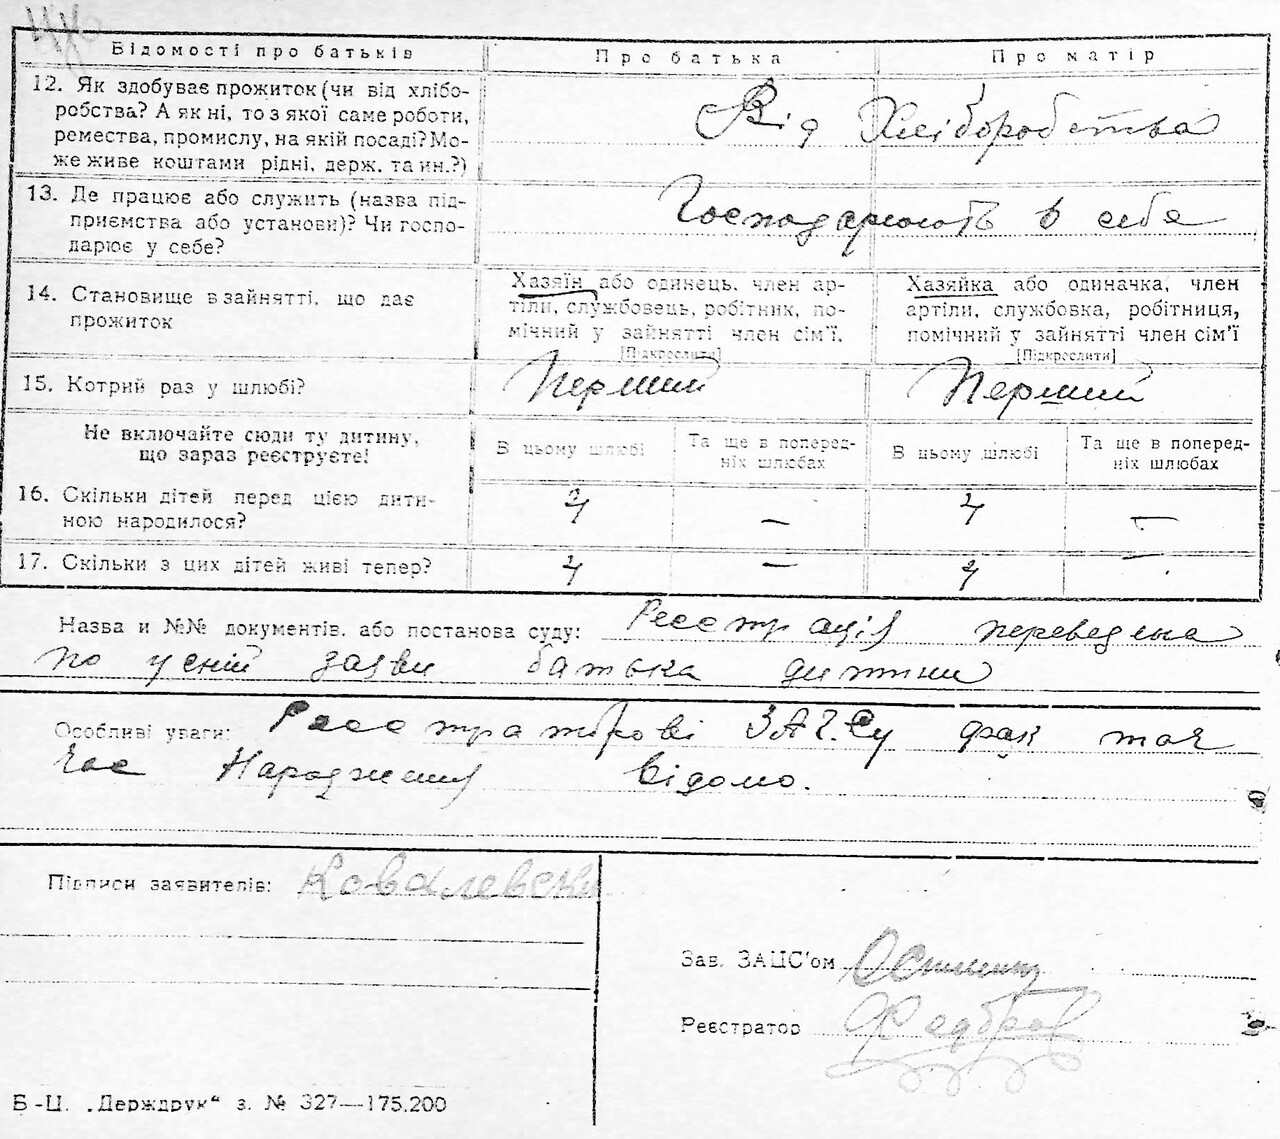 Відомості про батьків
Про батька
Про матір
12. Як здобуває прожиток (чи від хлібо-
робства? А як ні, то з якої саме роботи,
ремества, промислу, на якій посаді? Мо-
же живе коштами рідні, держ. та ин.?)
Від Хліборобства
13. Де працює або служить (назва під-
приємства або установи)? Чи госпо-
дарює у себе?
Господарюють в себе
14. Становище в зайнятті, що дає
прожиток
Хазяїн або одинець, член ар-
тіли, службовець, робітник, по-
мічний у зайнятті член сім'ї.
[Підкреслити]
Хазяйка або одиначка, член
артіли, службовка, робітниця,
помічний у зайнятті член сім'ї
[Підкреслити]
15. Котрий раз у шлюбі?
Перший
Перший
Не включайте сюди ту дитину,
що зараз реєструєте!
В цьому шлюбі
Та ще в поперед-
ніх шлюбах
В цьому шлюбі
Та ще в поперед-
ніх шлюбах
16. Скільки дітей перед цією дити-
ною народилося?
4 — 4 —
17. Скільки з цих дітей живі тепер?
4 — 4 —
Назва и №№ документів, або постанова суду: Реєстрація переведена
по усній заяві батька дитини
Особливі уваги: Реєстраторові ЗАГСу факт та
час Народження відомо.
Підписи заявителів: Ковалевский
Зав. ЗАЦС'ом
Реєстратор
Б-Ц. „Держдрук“ з. № 327—175.200